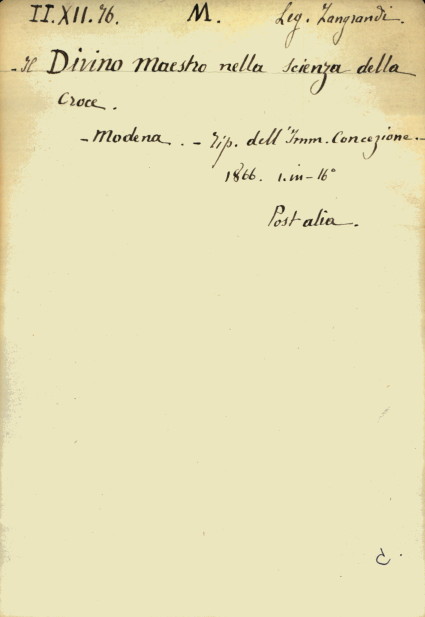 II.XII.76. M. Leg. Zangrandi.
- Il Divino maestro nella scienza della
Croce.
- Modena. - Tip. dell'Imm. Concezione. -
1866. 1. in - 16°
Post alia.